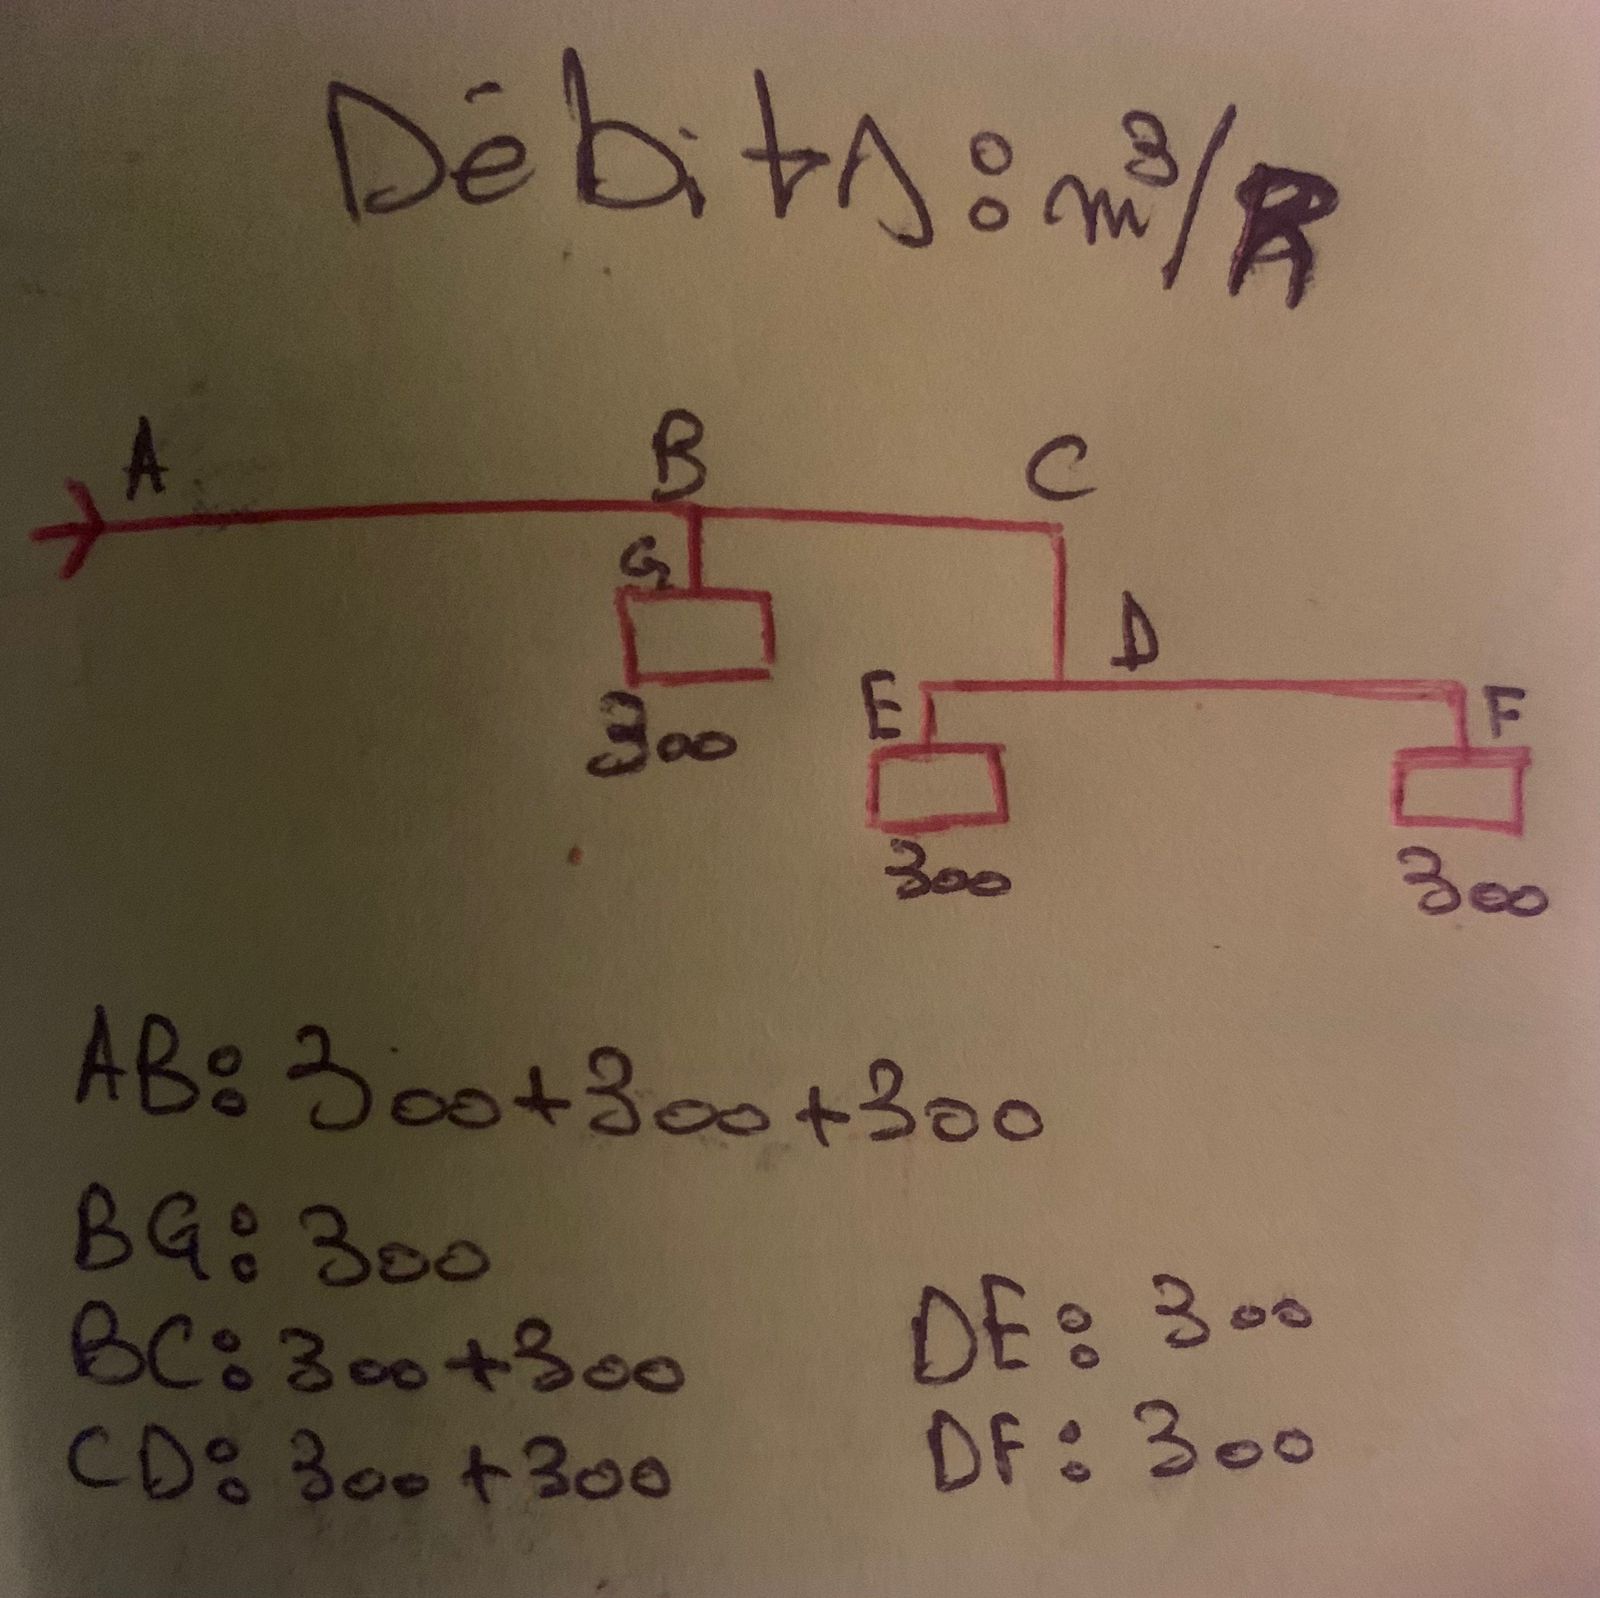 Débits : m³/h
A
B
C
G
D
E
F
300
300
300
AB : 300+300+300
BG : 300
BC : 300+300
CD : 300+300
DE : 300
DF : 300